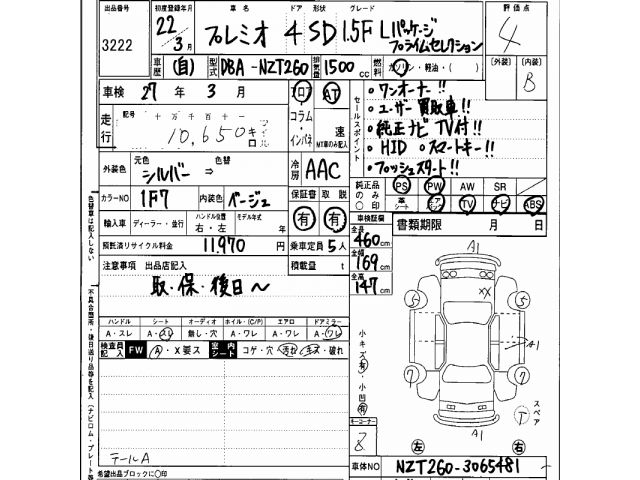 出品番号 初度登録年月 車名 ドア 形状 グレード 評価点
3222 22/3月 プレミオ 4 SD 1.5F Lパッケージ
プライムセレクション 4
車歴 (自) 型式 DBA-NZT260 排気量 1500 cc 燃料 ガソリン・軽油・( ) [外装] [内装]
B
車検 27 年 3 月 フロア AT
・ワンオーナー!!
走行 記号 十万千百十一 コラム
・ユーザー買取車!!
10,650 キロ インパネ 速 MT車のみ記入
・純正ナビ TV付!!
セールスポイント
・HID ・スマートキー!!
・プッシュスタート!!
外装色 元色 シルバー ⇒ 色替 冷房 AAC
カラーNO 1F7 内装色 ベージュ 保証書 取説 純正品のみ○印 PS PW AW SR
有 有 革シート エアバッグ TV ナビ ABS
輸入車 ディーラー・並行 ハンドル位置 右・左 モデル年式 年 車検証欄 書類期限 月 日
預託済リサイクル料金 11,970 円 乗車定員 5人 全長 460 cm
積載量 t 全幅 169 cm
全高 147 cm
注意事項 出品店記入
取・保・後日〜
色替車は記入しない
不具合箇所・後日送り品等を記入(ナビロム・プレート等
ハンドル シート オーディオ ホイル・(C/P) エアロ ドアミラー
A・スレ A・スレ 無し・穴 A・ワレ A・ワレ A・ワレ
検査員記入 FW A・X要ス 室内シート コゲ・穴・汚れ・キズ・破れ
小キズ有・小凹有
キーコーナー
8
A1
XX
5 5
A1
7 7
T スペア
A1
左 右
テールA
希望出品ブロックに○印
車体NO NZT260-3065481